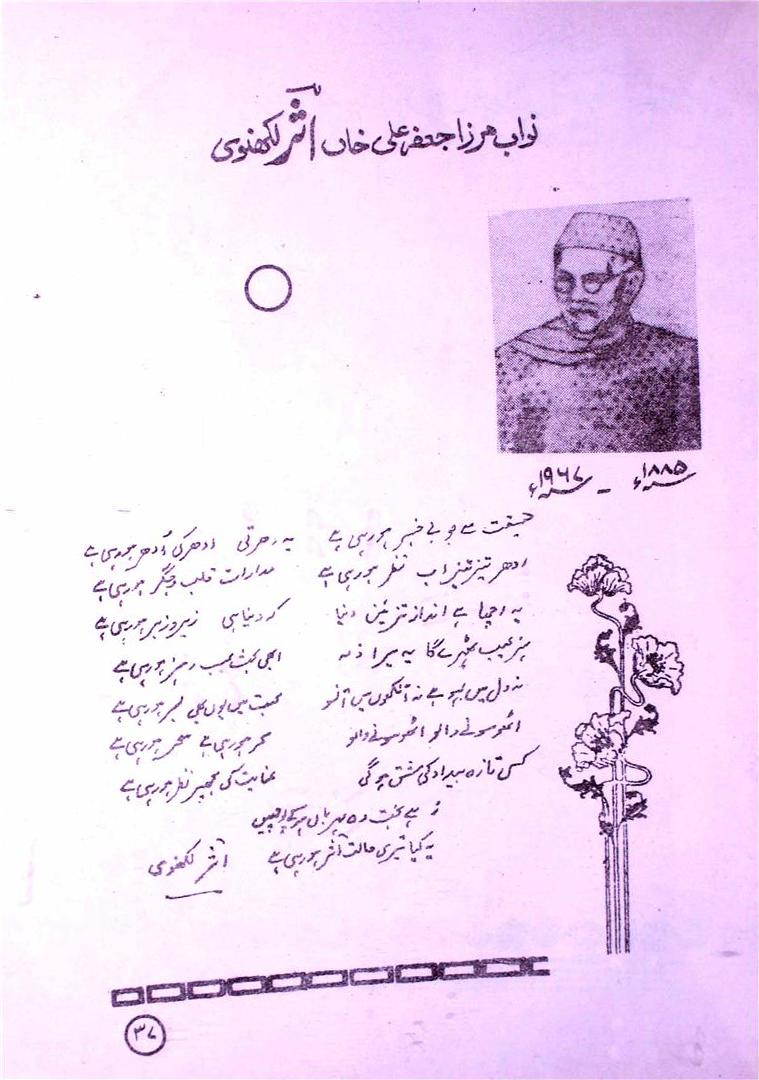 نواب مرزا جعفر علی خاں اثر لکھنوی
۱۸۸۵ء - ۱۹۶۷ء
حقیقت سے وہ بے خبر ہو رہی ہے یہ دھرتی ادھر کی اُدھر ہو رہی ہے
ادھر تیز تیز اب نظر ہو رہی ہے مدارات قلب و جگر ہو رہی ہے
یہ اچھا ہے انداز تزئین دنیا کہ دنیا ہی زیر و زبر ہو رہی ہے
ہنر عیب ٹھہرے گا یہ میرا ذمہ ابھی بحث عیب و ہنر ہو رہی ہے
نہ دل میں لہو ہے نہ آنکھوں میں آنسو محبت میں یوں بھی بسر ہو رہی ہے
اٹھو سونے والو اٹھو سونے والو سحر ہو رہی ہے سحر ہو رہی ہے
کس تازہ بیداد کی مشق ہو گی عنایت کی مجھ پر نظر ہو رہی ہے
زہے بخت وہ مہرباں ہو کے پوچھیں
یہ کیا تیری حالت اثر ہو رہی ہے
اثر لکھنوی
۳۷